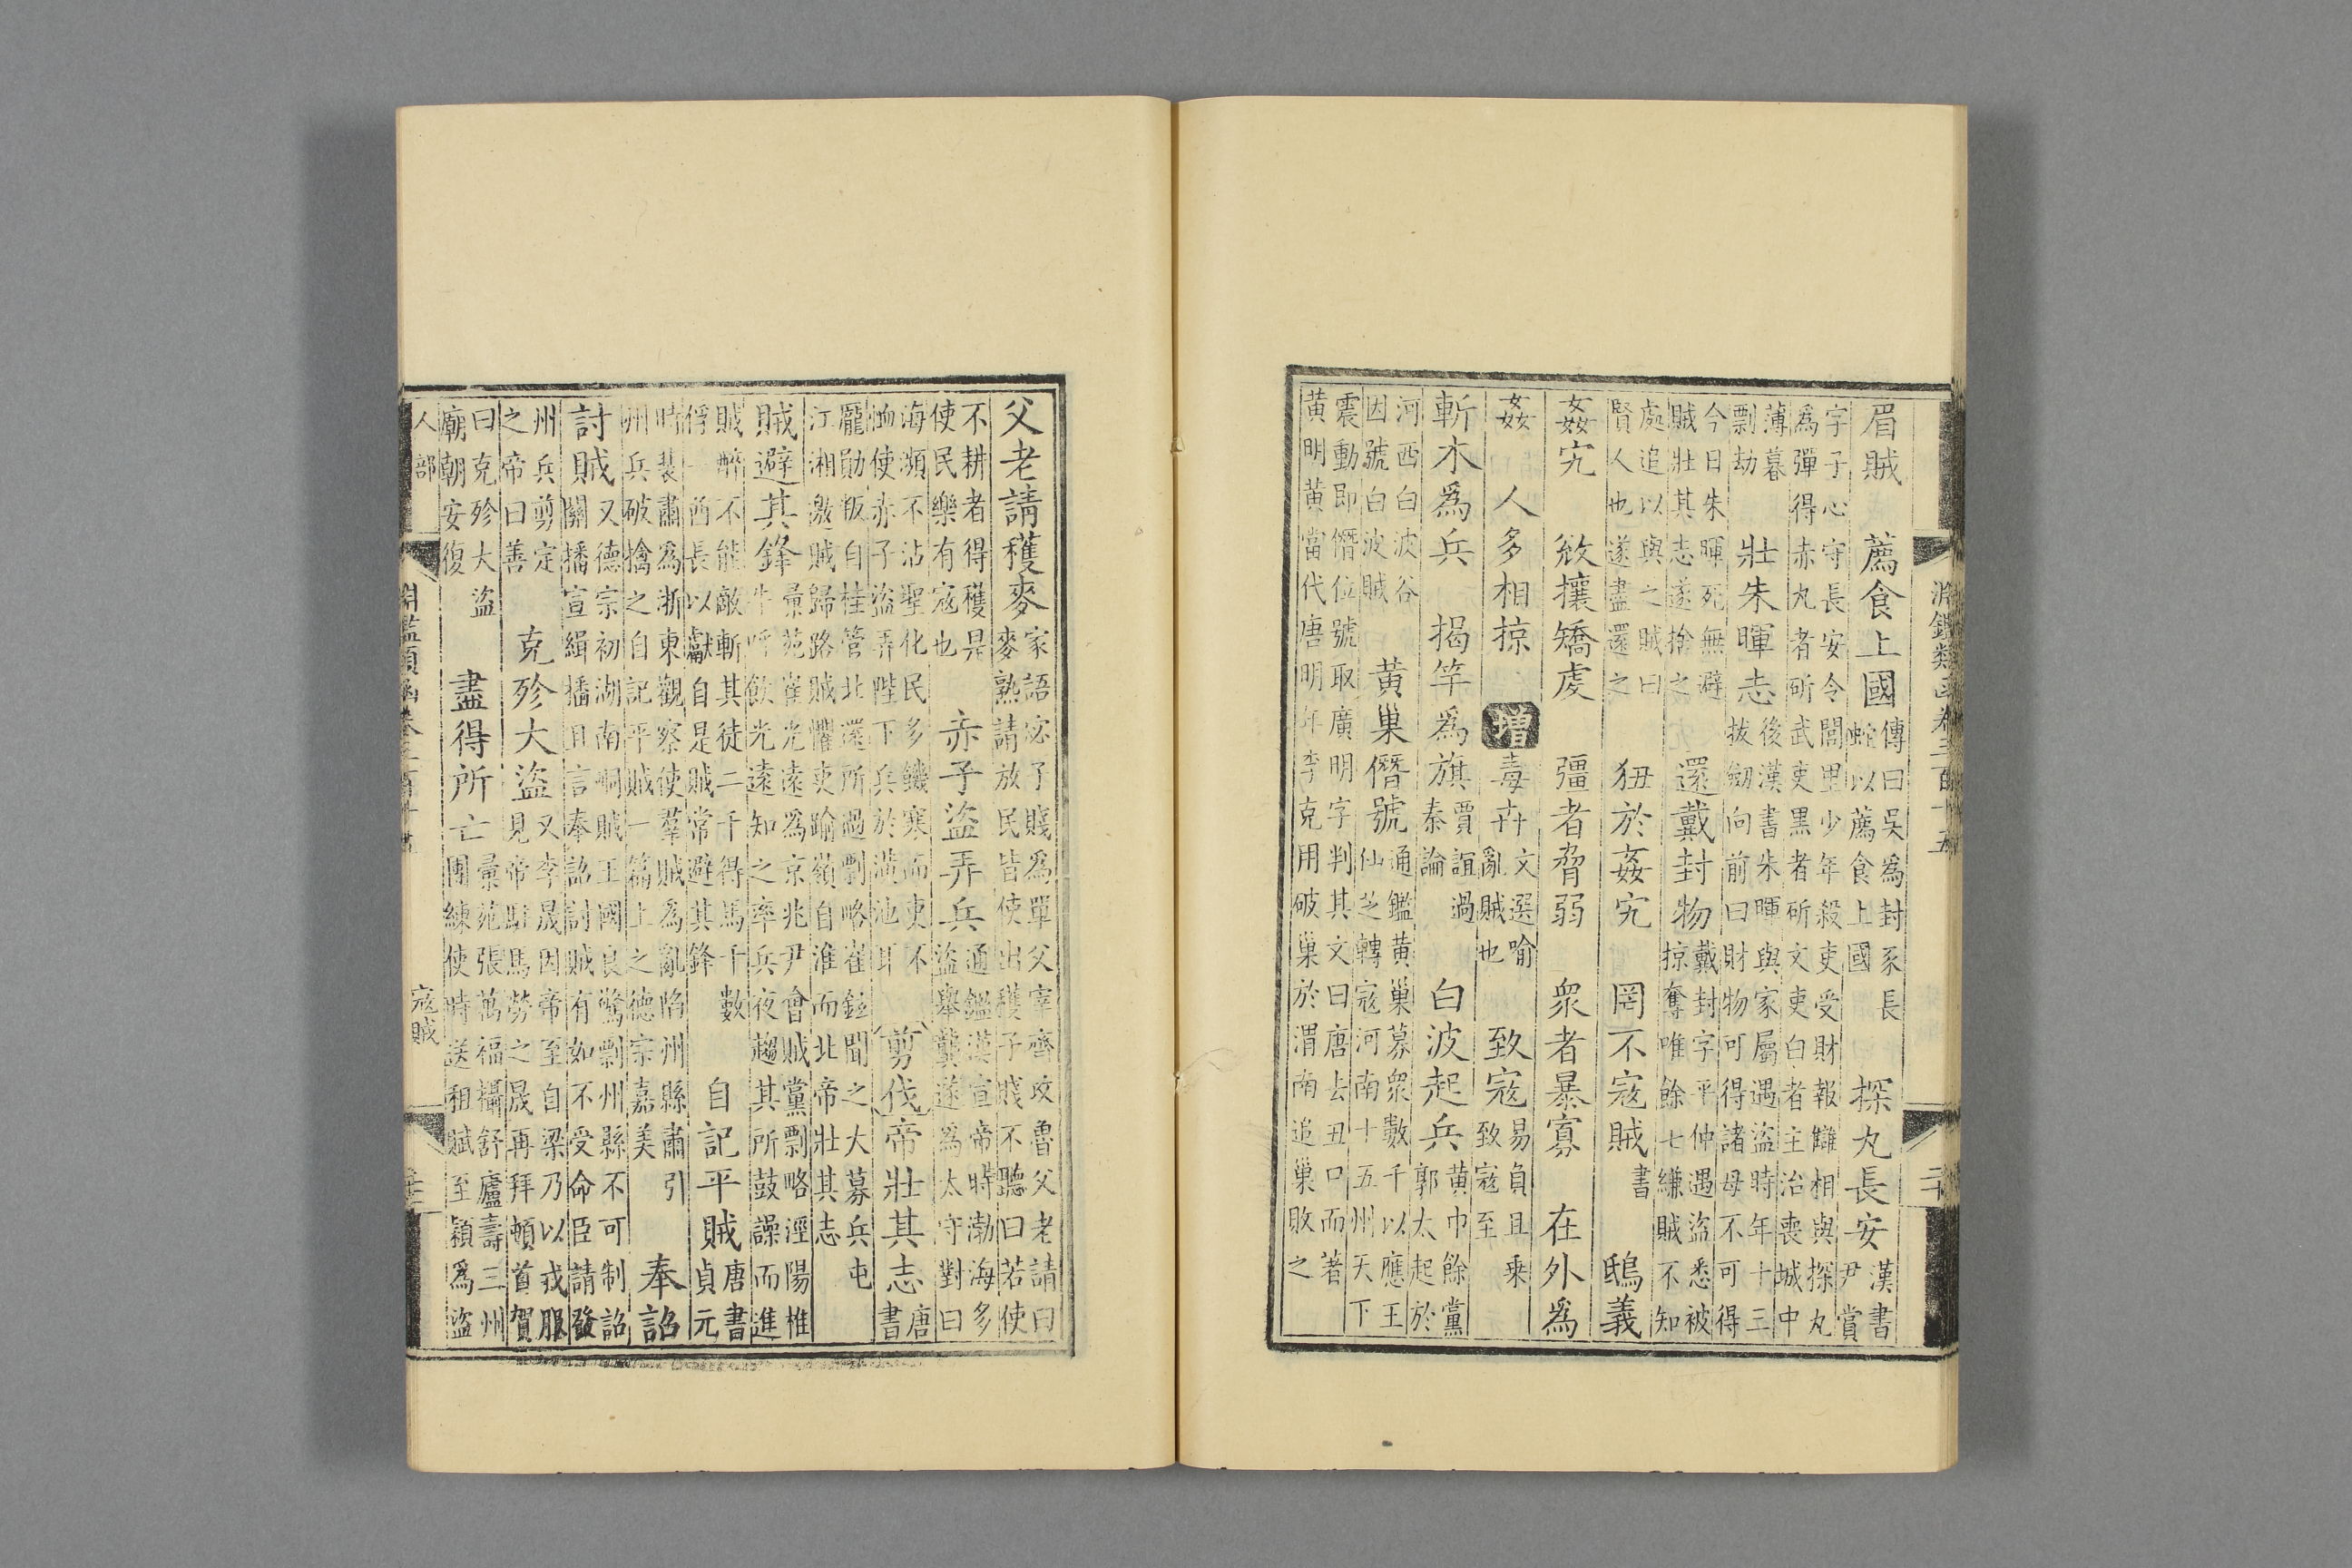 淵鑑類函卷三百十五 二十
眉賊 薦食上國 傳曰吳為封豕長蛇以薦食上國 探丸長安 漢書尹賞
字子心守長安令閭里少年殺吏受財報讎相與探丸為彈得赤丸者斫武吏黑者斫文吏白者主治喪城中
薄暮剽劫 壯朱暉志 後漢書朱暉與家屬遇盜時年十三拔劒向前曰財物可得諸母不可得
今日朱暉死無避賊壯其志遂捨之 還戴封物 戴封字平仲遇盜悉被掠奪唯餘七縑賊不知
處追以與之賊曰賢人也遂盡還之 狃於姦宄 罔不寇賊 書 鴟義
姦宄 敓攘矯虔 彊者脅弱 衆者暴寡 在外為
姦 人多相掠 增 毒卉 文選喻亂賊也 致寇 易負且乗致寇至
斬木為兵 揭竿為旗 賈誼過秦論 白波起兵 黄巾餘黨郭太起於
河西白波谷因號白波賊 黄巢僭號 通鑑黄巢募衆數千以應王仙芝轉寇河南十五州天下
震動即僭位號取廣明字判其文曰唐去丑口而著黄明黄當代唐明年李克用破巢於渭南追巢敗之
父老請穫麥 家語宓子賤為單父宰齊攻魯父老請曰麥熟請放民皆使出穫子賤不聽曰若使
不耕者得穫是使民樂有寇也 赤子盜弄兵 通鑑漢宣帝時渤海多盜舉龔遂為太守對曰
海瀕不沾聖化民多饑寒而吏不恤使赤子盜弄陛下兵於潢池耳 剪伐 帝壯其志 唐書
龐勛叛自桂管北還所過剽略崔鉉聞之大募兵屯江湘邀賊歸路賊懼吏踰嶺自淮而北帝壯其志
賊避其鋒 彙苑崔光遠為京兆尹會賊黨剽略涇陽椎牛呼飲光遠知之率兵夜趨其所鼓譟而進
賊醉不能敵斬其徒二千得馬千數俘一酋長以獻自是賊常避其鋒 自記平賊 唐書貞元
時裴肅為浙東觀察使羣賊為亂陷州縣肅引州兵破擒之自記平賊一篇上之德宗嘉美 奉詔
討賊 又德宗初湖南峒賊王國良驚剽州縣不可制詔關播宣緝播且言奉詔討賊有如不受命臣請發
州兵剪定之帝曰善 克殄大盜 又李晟因帝至自梁乃以戎服見帝駐馬勞之晟再拜頓首賀
曰克殄大盜廟朝安復 盡得所亡 彙苑張萬福攝舒廬壽三州團練使時送租賦至潁為盜
人部 淵鑑類函卷三百十五 寇賊